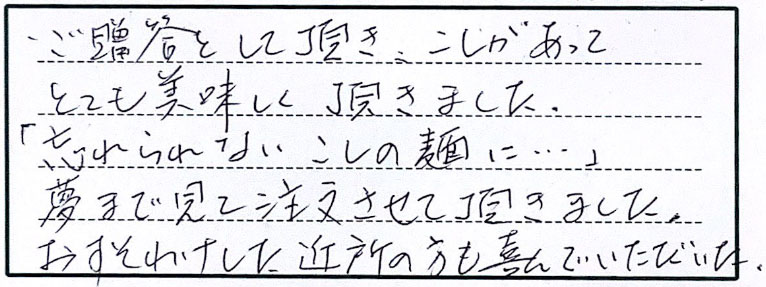 ご贈答として頂き、こしがあって
とても美味しく頂きました。
「忘れられないこしの麺に…」
夢まで見て注文させて頂きました。
おすそわけした近所の方も喜んでいただいた。